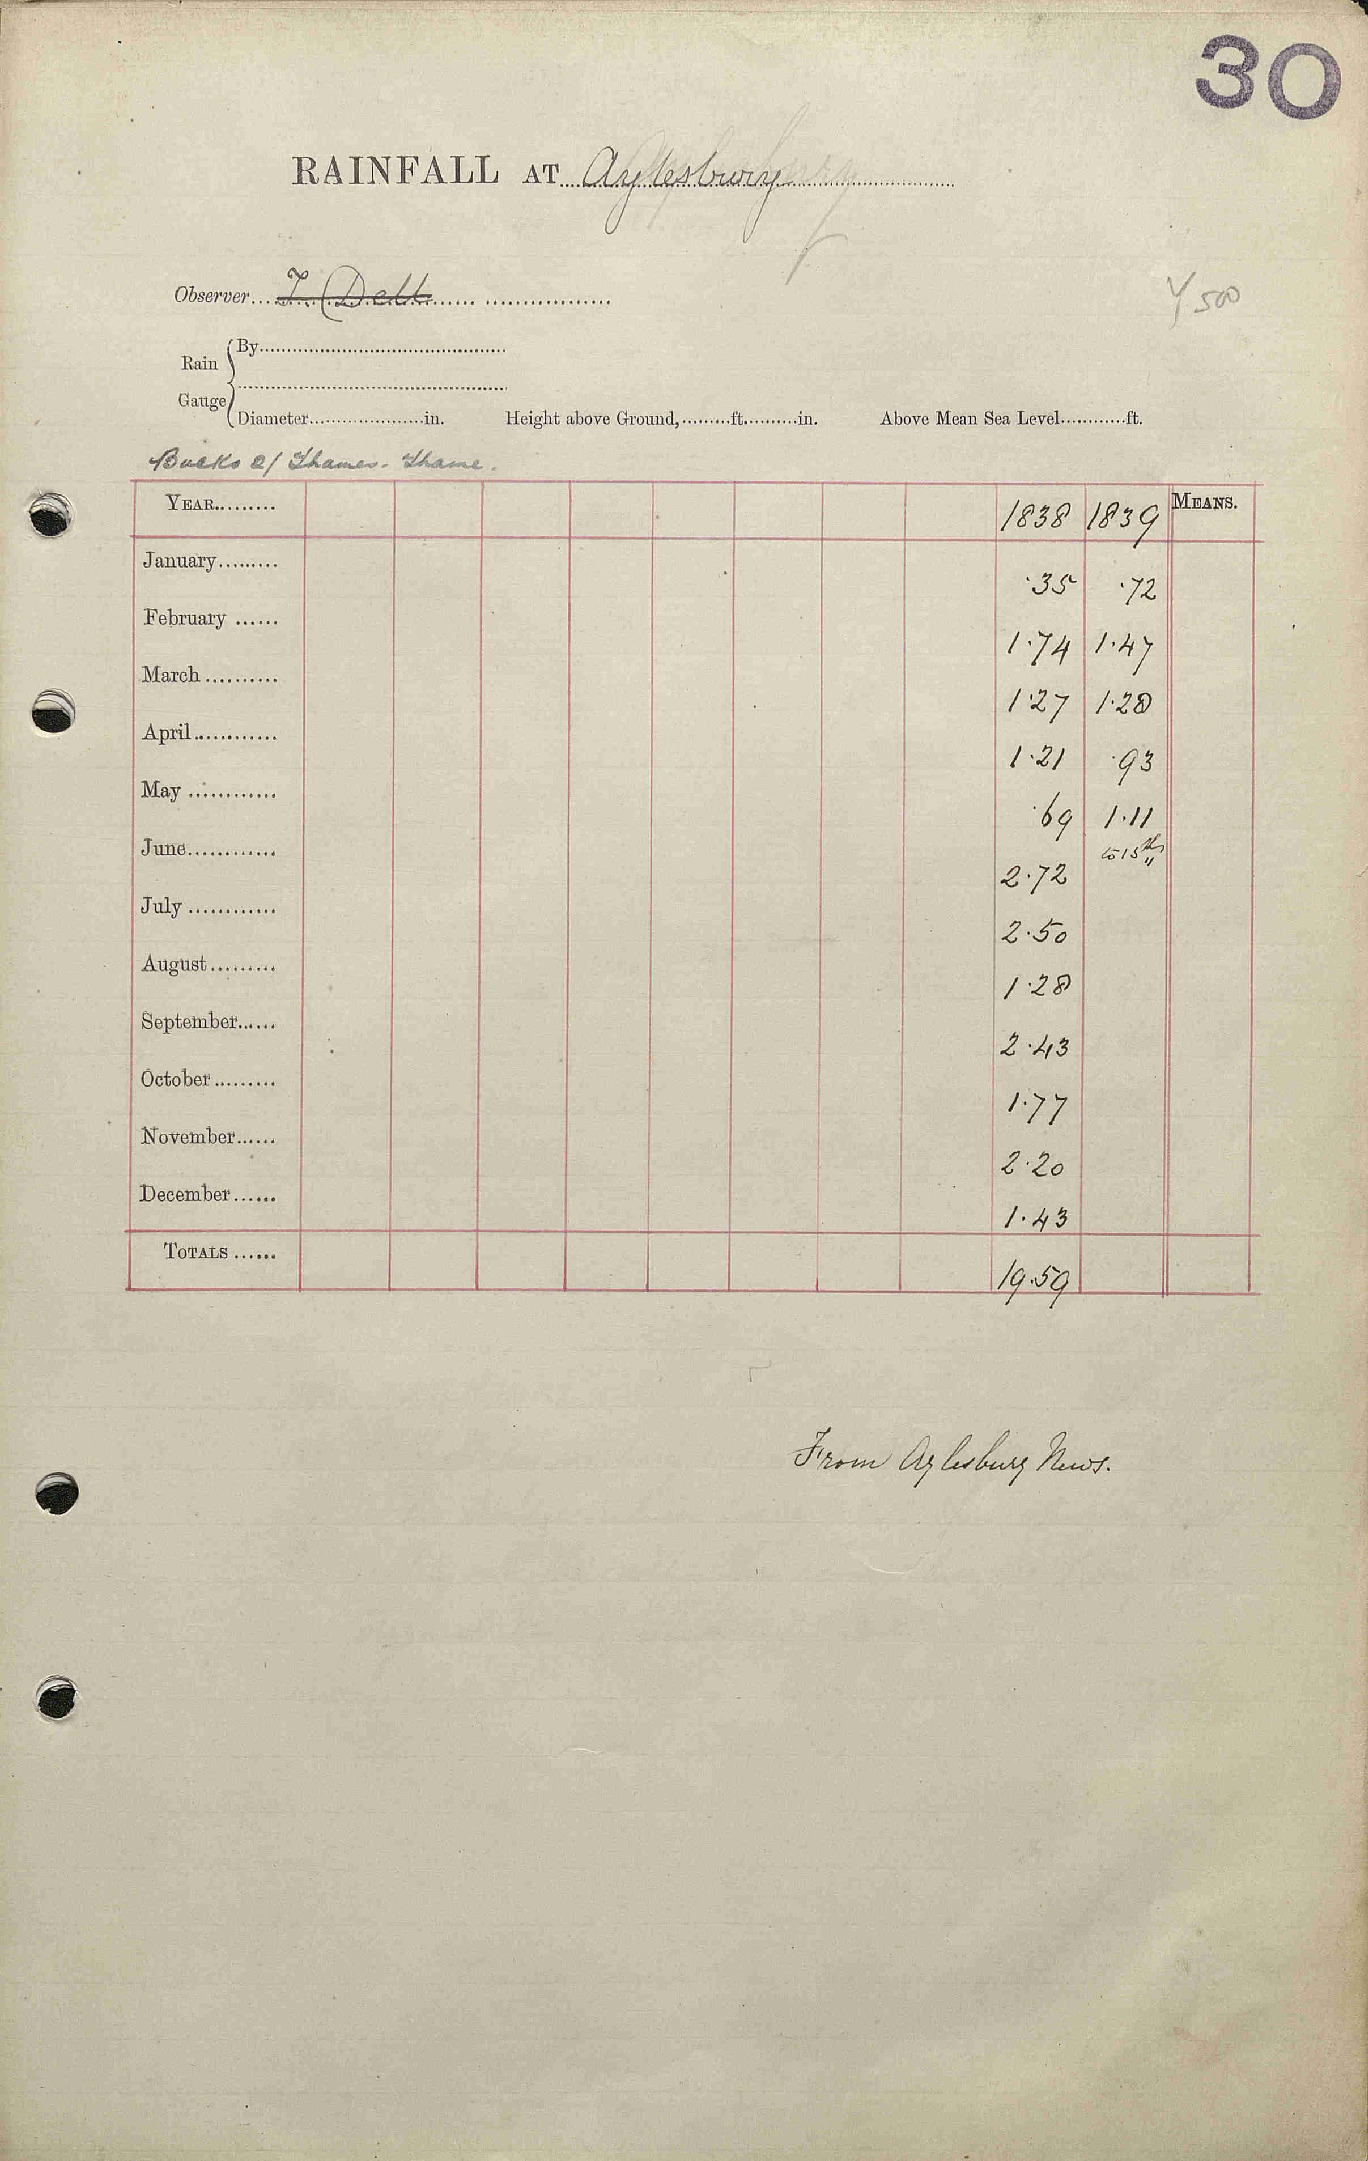 30
RAINFALL AT Aylesbury
Observer T. Dell
Y 500
Rain Gauge { By
Diameter in. Height above Ground, ft. in. Above Mean Sea Level ft.
Bucks e/ Thames. Thame.
YEAR 1838 1839 MEANS.
January ·35 ·72
February 1·74 1·47
March 1·27 1·28
April 1·21 ·93
May ·69 1·11
June 2·72 to 15th "
July 2·50
August 1·28
September 2·43
October 1·77
November 2·20
December 1·43
TOTALS 19·59
From Aylesbury News.